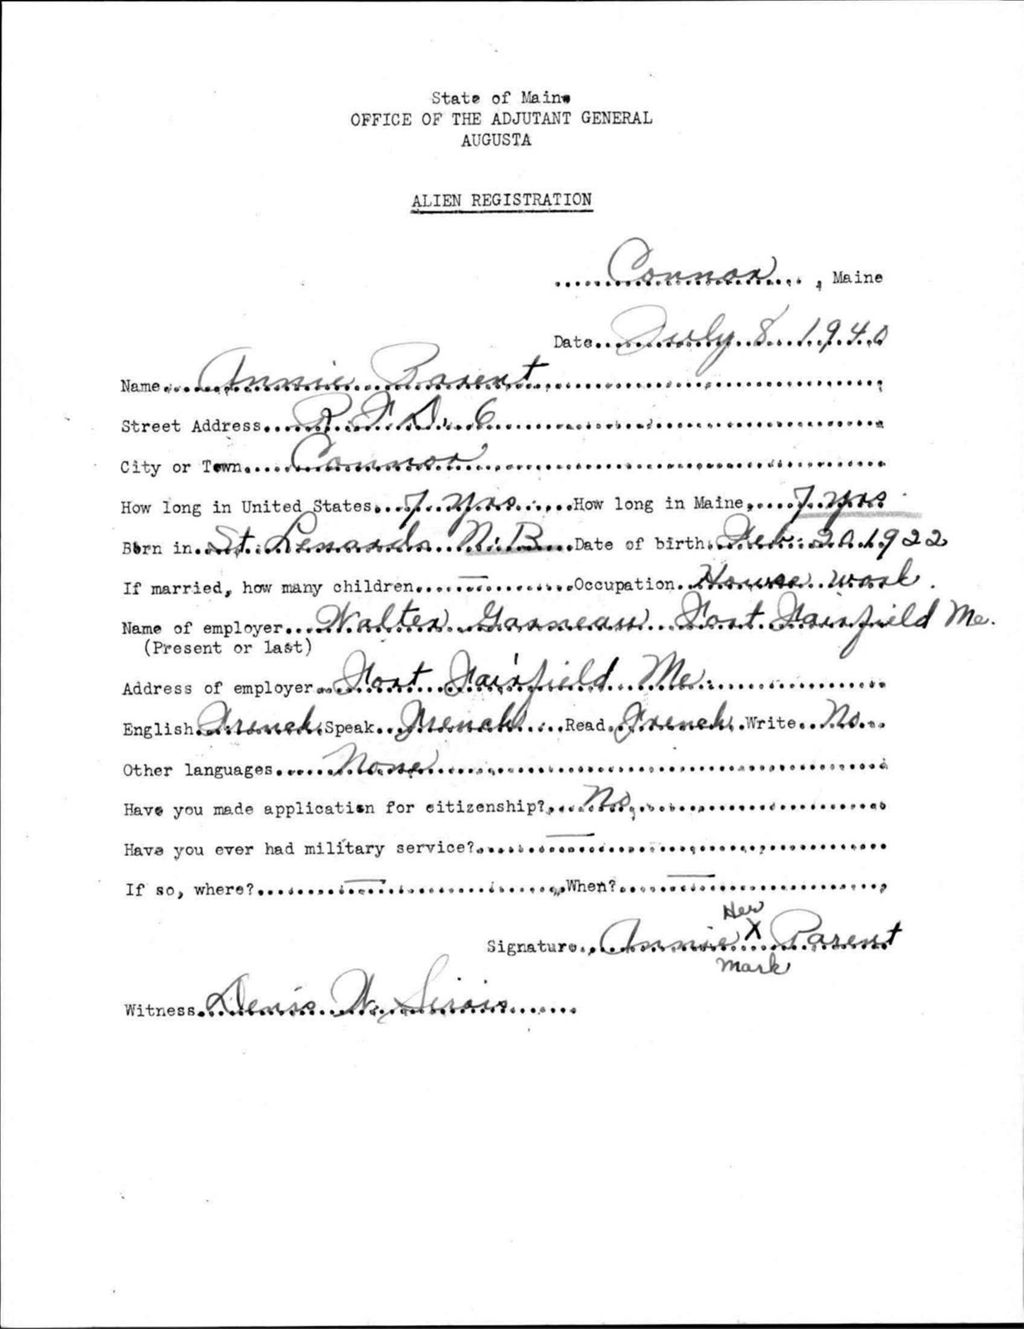 State of Maine
OFFICE OF THE ADJUTANT GENERAL
AUGUSTA
ALIEN REGISTRATION
Connor, Maine
Date July 8 1940
Name Annie Parent
Street Address R. F. D. 6
City or Town Connor
How long in United States 7 yrs How long in Maine 7 yrs
Born in St. Lenards N. B. Date of birth Feb. 20 1922
If married, how many children — Occupation House work.
Name of employer Walter Garneau Fort Fairfield Me.
(Present or last)
Address of employer Fort Fairfield Me.
English French Speak French Read French Write No
Other languages None
Have you made application for citizenship? No
Have you ever had military service? —
If so, where? — When? —
Her
Signature Annie X Parent
Mark
Witness Denis W. Sirois